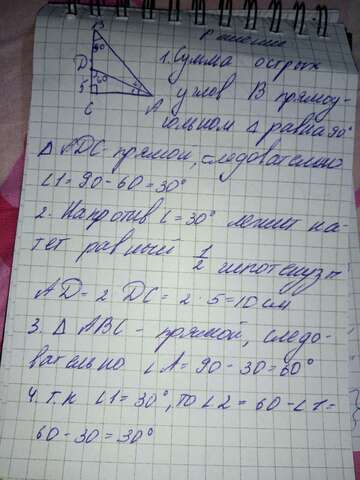 B
Решение
30
D
60
5
C
A
1. Сумма острых
углов В прямоу-
гольном Δ равна 90°
Δ ADC - прямой, следовательно
∠1 = 90 - 60 = 30°
2. Напротив ∠ = 30° лежит ка-
тет равный 1/2 гипотенузы
AD = 2 DC = 2 · 5 = 10 см
3. Δ ABC - прямой, следо-
вательно ∠A = 90 - 30 = 60°
4. т.к ∠1 = 30°, то ∠2 = 60 - ∠1 =
60 - 30 = 30°